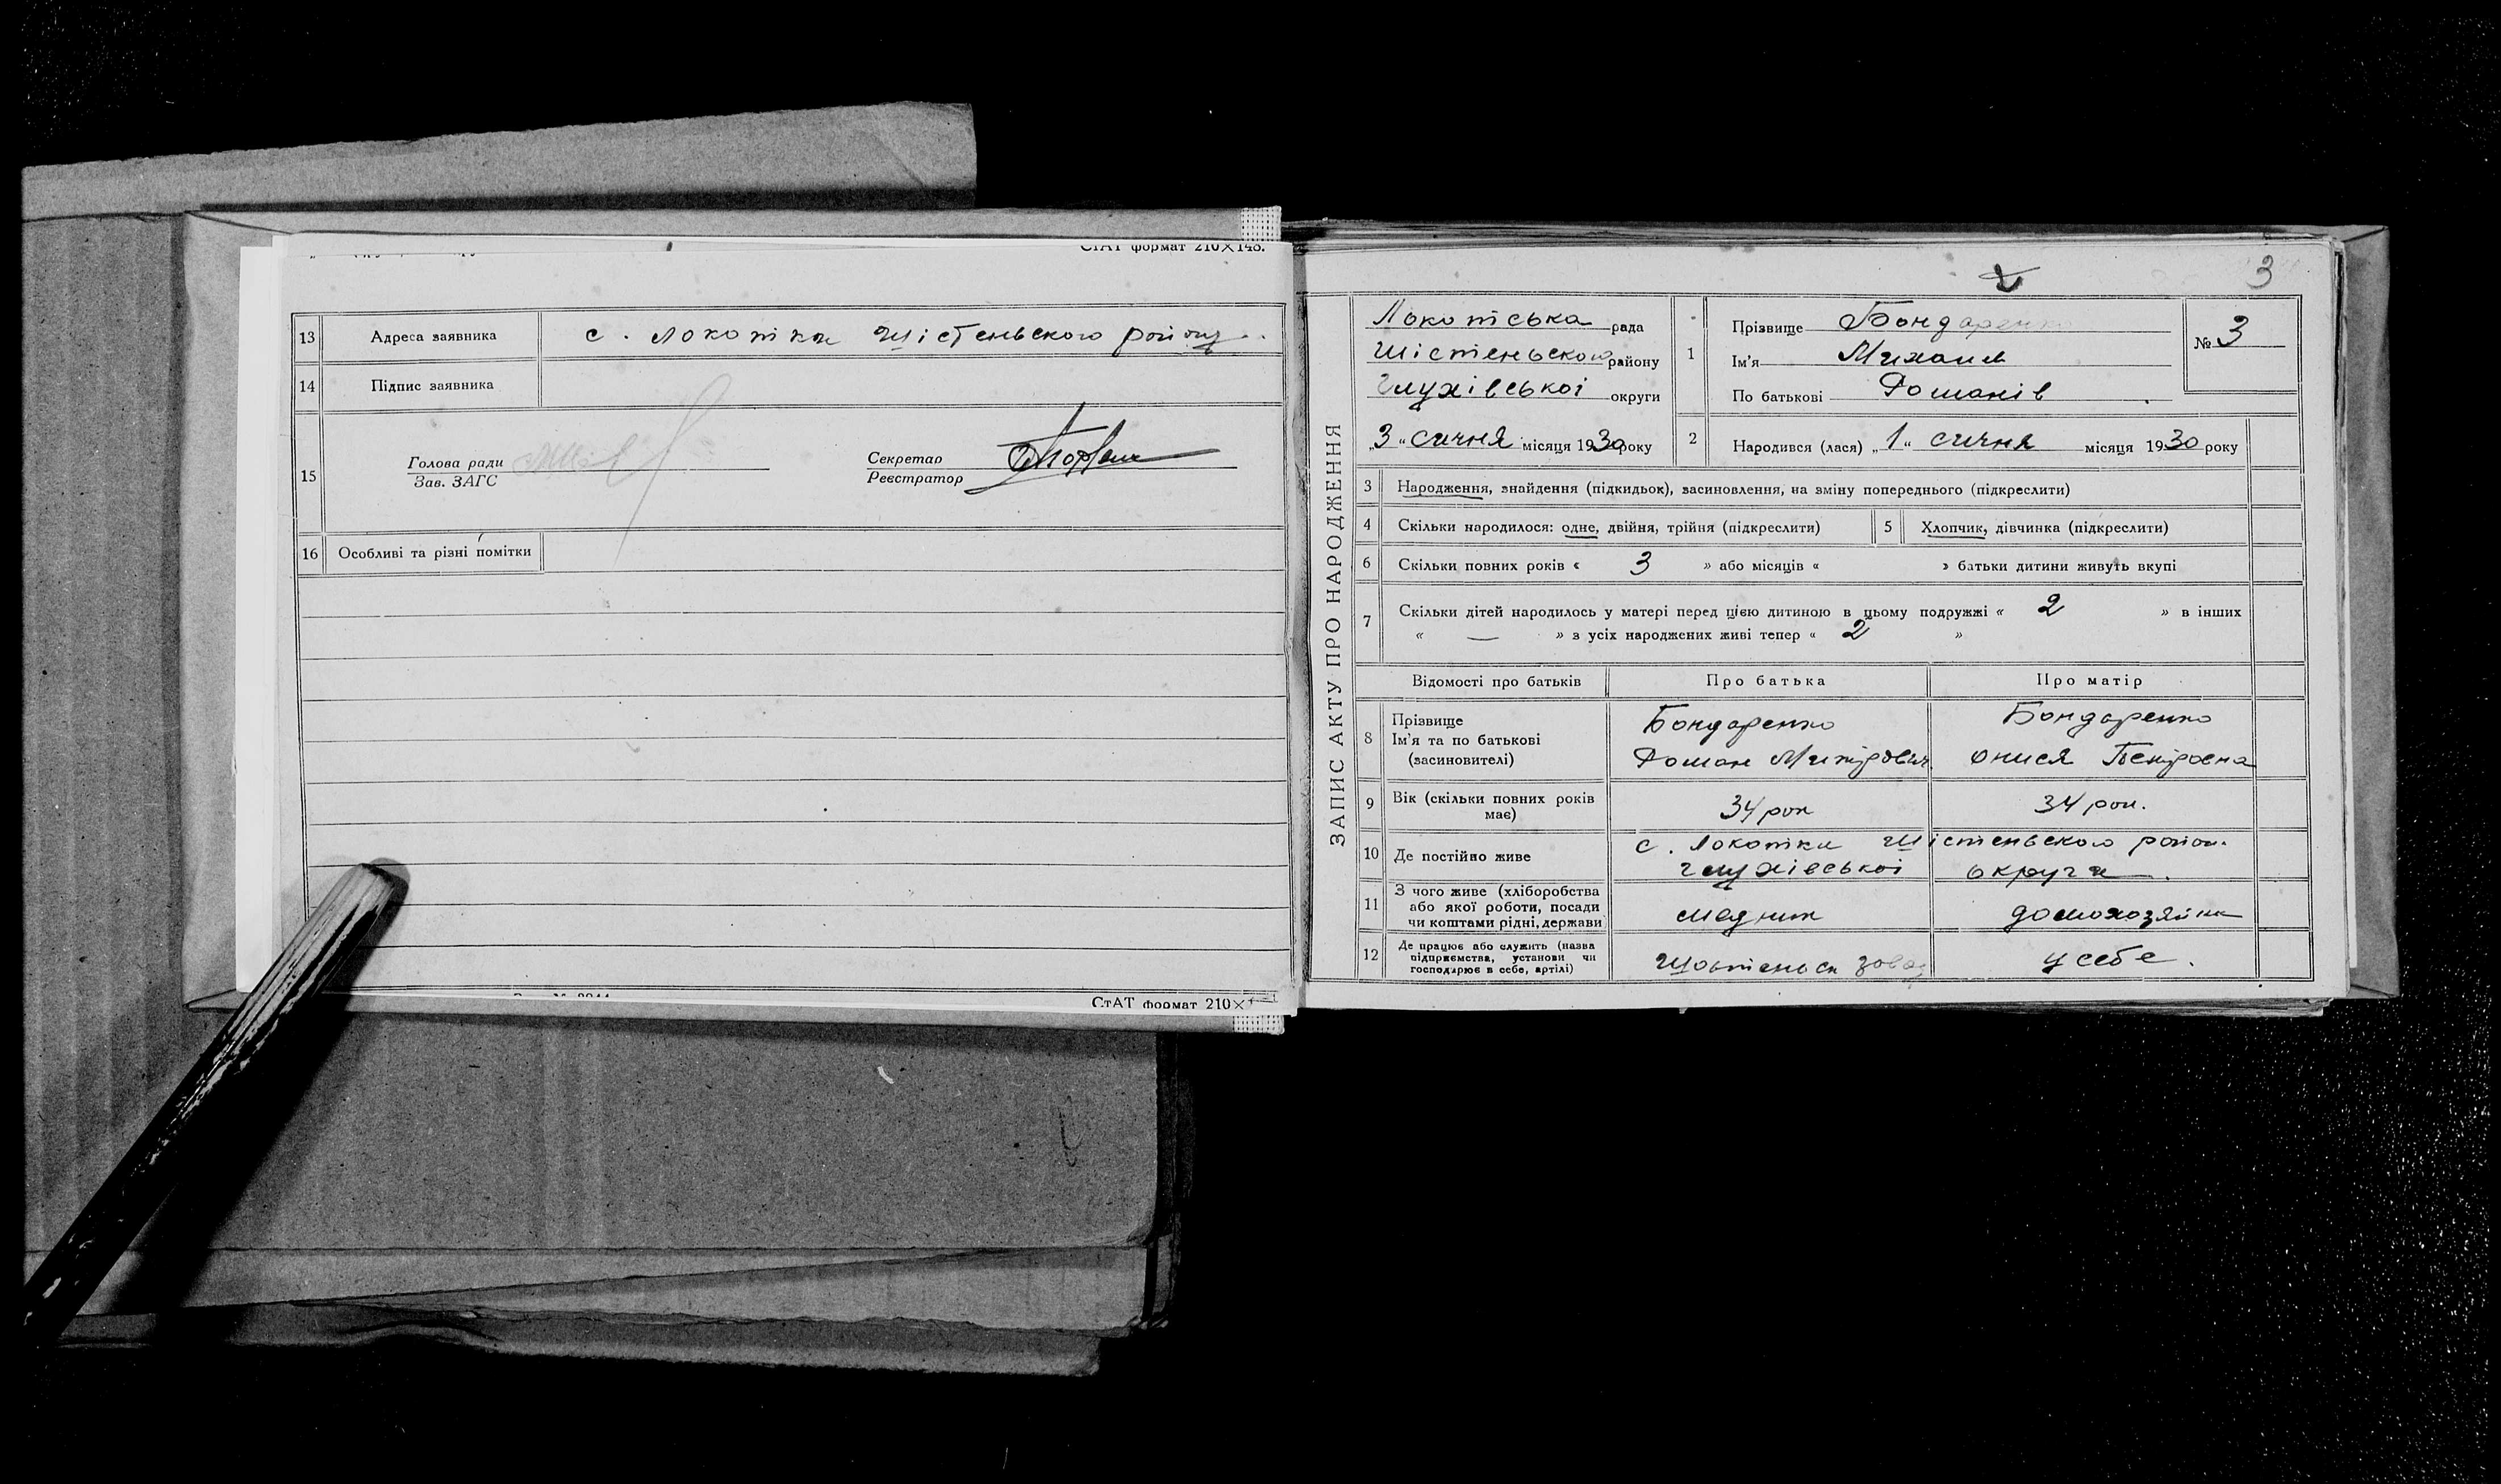 СтАТ формат 210×148.
13 Адреса заявника с. Локотки Шістеньского району
14 Підпис заявника
15 Голова ради
Зав. ЗАГС
Секретар
Реєстратор
16 Особливі та різні помітки
СтАТ формат 210×
3
ЗАПИС АКТУ ПРО НАРОДЖЕННЯ
Локотська рада
Шістенського району
Глухівської округи
„3“ січня місяця 1930 року
1 Прізвище Бондаренко
Ім'я Михаил
По батькові Романів
№ 3
2 Народився (лася) „1“ січня місяця 1930 року
3 Народження, знайдення (підкидьок), засиновлення, на зміну попереднього (підкреслити)
4 Скільки народилося: одне, двійня, трійня (підкреслити) 5 Хлопчик, дівчинка (підкреслити)
6 Скільки повних років « 3 » або місяців « » батьки дитини живуть вкупі
7 Скільки дітей народилось у матері перед цією дитиною в цьому подружжі « 2 » в інших
« — » з усіх народжених живі тепер « 2 »
Відомості про батьків Про батька Про матір
8 Прізвище Бондаренко Бондаренко
Ім'я та по батькові
(засиновителі) Роман Онися Петровна
9 Вік (скільки повних років має) 34 рок 34 рок.
10 Де постійно живе с. Локотки Шістеньского район.
Глухівської округи.
11 З чого живе (хліборобства
або якої роботи, посади
чи коштами рідні, держави медник домохозяйка
12 Де працює або служить (назва
підприємства, установи чи
господарює в себе, артілі) завод у себе.